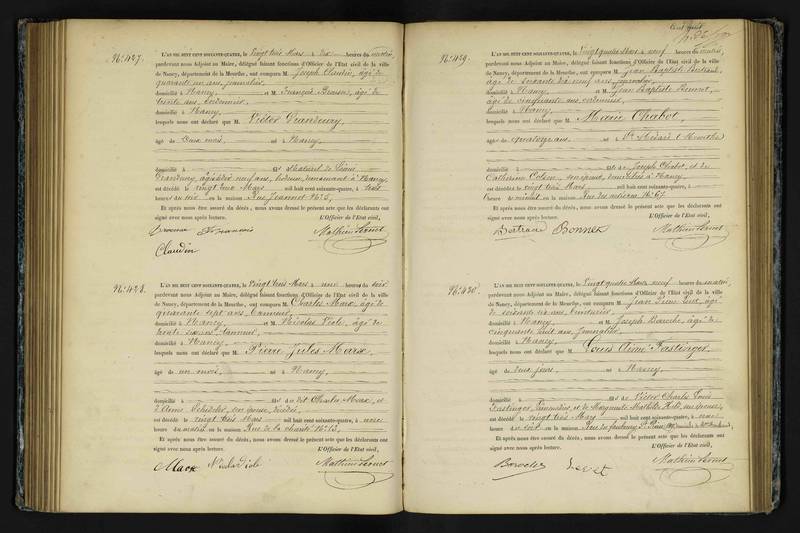 N° 427.
L'AN MIL HUIT CENT SOIXANTE-QUATRE, le vingt trois Mars à dix heures du matin,
pardevant nous Adjoint au Maire, délégué faisant fonctions d'Officier de l'Etat civil de la ville
de Nancy, département de la Meurthe, ont comparu M. Joseph Claudin, âgé de
quarante un ans, journalier
domicilié à Nancy, et M. François Bronner, âgé de
trente ans, cordonnier,
domicilié à Nancy,
lesquels nous ont déclaré que M. Victor
âgé de deux mois, né à Nancy,
domicilié à fils naturel de
âgée de dix neuf ans, demeurant à Nancy
est décédé le vingt trois Mars mil huit cent soixante-quatre, à
heures du soir en la maison Rue Jeannot N° 5,
Et après nous être assuré du décès, nous avons dressé le présent acte que les déclarants ont
signé avec nous après lecture. L'Officier de l'Etat civil,
Claudin
N° 428.
L'AN MIL HUIT CENT SOIXANTE-QUATRE, le vingt trois Mars à une heures du soir
pardevant nous Adjoint au Maire, délégué faisant fonctions d'Officier de l'Etat civil de la ville
de Nancy, département de la Meurthe, ont comparu M. Charles Marx, âgé de
quarante sept ans, tanneur,
domicilié à Nancy, et M. Nicolas Viole, âgé de
trente six ans, tanneur,
domicilié à Nancy,
lesquels nous ont déclaré que M. Pierre Jules Marx,
âgé de un mois, né à Nancy,
domicilié à fils du dit Charles Marx, et
d'Anne son épouse, décédée,
est décédé le vingt trois Mars mil huit cent soixante-quatre, à onze
heures du matin en la maison Rue de la charité N° 13,
Et après nous être assuré du décès, nous avons dressé le présent acte que les déclarants ont
signé avec nous après lecture. L'Officier de l'Etat civil,
Marx Nicolas Viole
N° 429.
L'AN MIL HUIT CENT SOIXANTE-QUATRE, le vingt quatre Mars à neuf heures du matin,
pardevant nous Adjoint au Maire, délégué faisant fonctions d'Officier de l'Etat civil de la ville
de Nancy, département de la Meurthe, ont comparu M. Jean Baptiste Bertrand,
âgé de soixante dix neuf ans, journalier,
domicilié à Nancy, et M. Jean Baptiste Bonnet,
âgé de cinquante ans, cordonnier,
domicilié à Nancy,
lesquels nous ont déclaré que M. Marie Chabot,
âgé de quatorze ans né à St Médard, Meurthe
domicilié à fille de Joseph Chabot, et de
Catherine son épouse, domiciliés à Nancy,
est décédée le vingt trois Mars mil huit cent soixante-quatre, à
heures de minuit en la maison Rue N° 67
Et après nous être assuré du décès, nous avons dressé le présent acte que les déclarants ont
signé avec nous après lecture. L'Officier de l'Etat civil,
Bertrand Bonnet
N° 430.
L'AN MIL HUIT CENT SOIXANTE-QUATRE, le vingt quatre Mars à neuf heures du matin,
pardevant nous Adjoint au Maire, délégué faisant fonctions d'Officier de l'Etat civil de la ville
de Nancy, département de la Meurthe, ont comparu M. Jean Pierre âgé
de soixante six ans,
domicilié à Nancy et M. Joseph Baroche, âgé de
cinquante huit ans,
domicilié à Nancy,
lesquels nous ont déclaré que M. Louis Aimé Fastinger,
âgé de deux jours, né à Nancy,
domicilié à fils de Victor Charles Louis
Fastinger, et de Marguerite Mathilde son épouse,
est décédé le vingt trois Mars mil huit cent soixante-quatre, à onze
heures du soir en la maison Rue du faubourg St Pierre
Et après nous être assuré du décès, nous avons dressé le présent acte que les déclarants ont
signé avec nous après lecture. L'Officier de l'Etat civil,